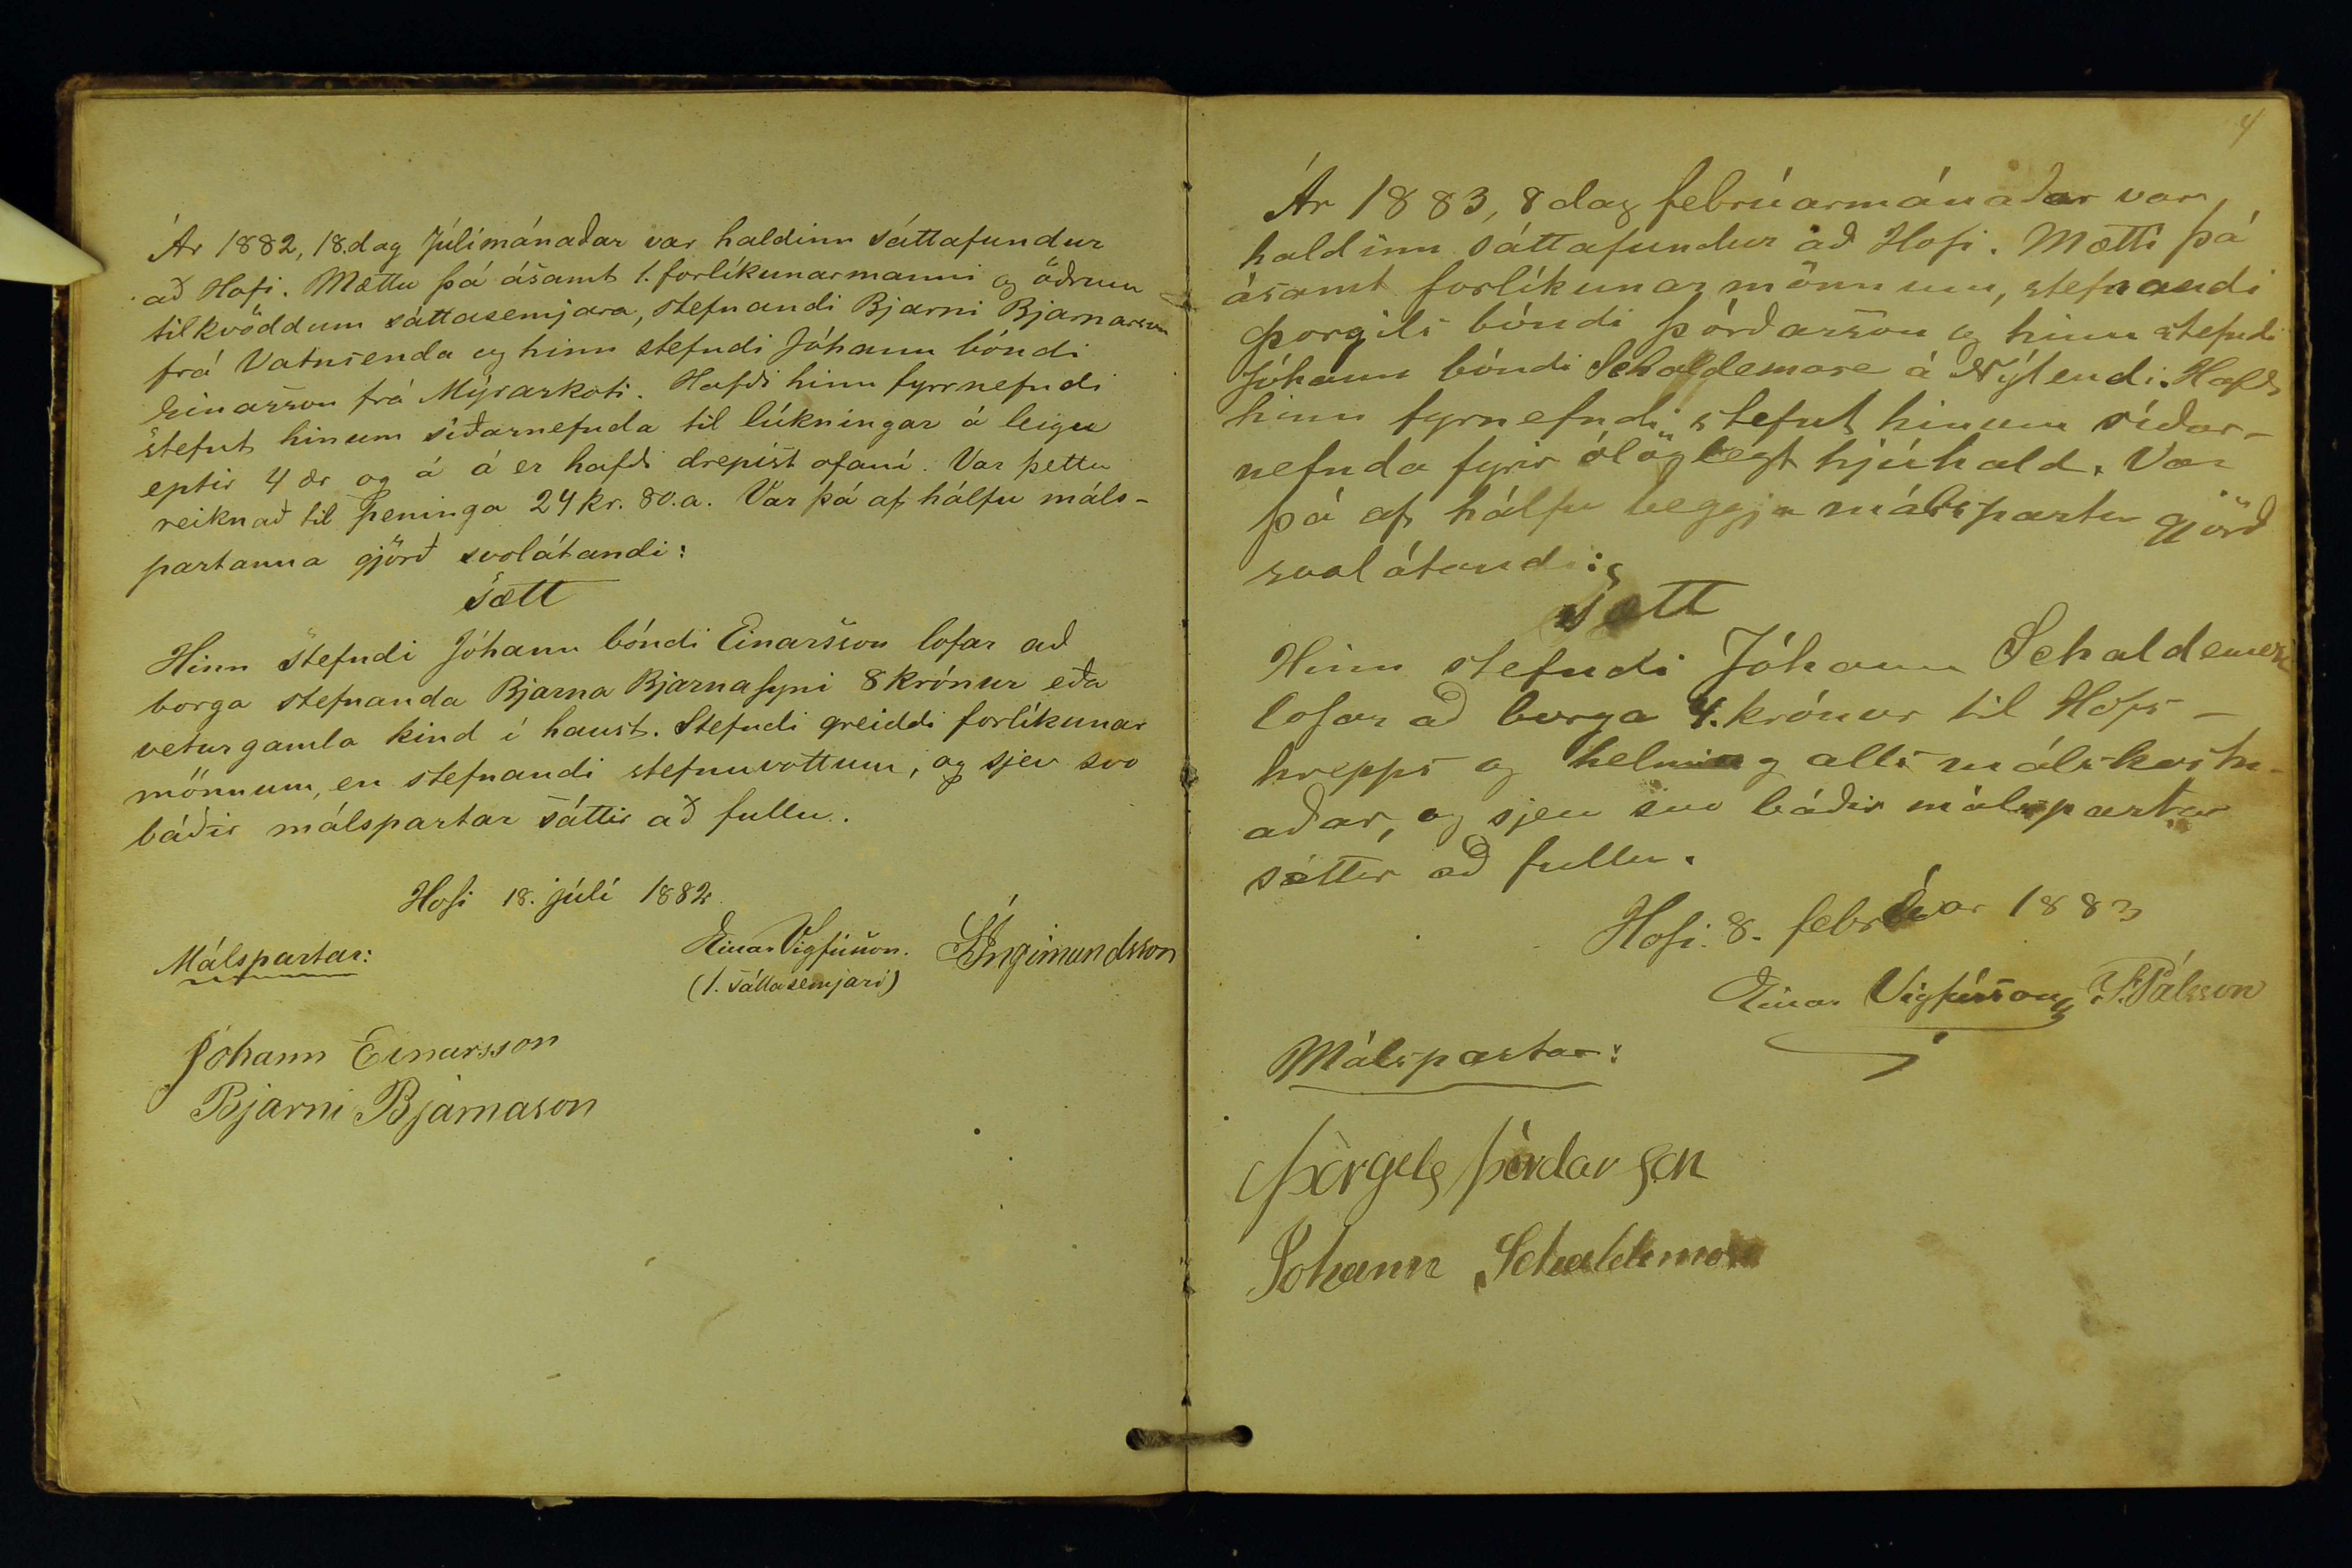 Ár 1882, 18. dag Júlímánaðar var haldinn sáttafundur
að Hofi. Mættu þá ásamt 1. forlíkunarmanni og öðrum
tilkvöddum sáttasemjara, stefnandi Bjarni Bjarnarson
frá Vatnsenda og hinn stefndi Jóhann bóndi
Einarsson frá Mýrarkoti. Hafði hinn fyrrnefndi
stefnt hinum síðarnefnda til lúkningar á leigu
eptir 4 ær og á á er hafði drepist ofaní. Var þetta
reiknað til peninga 24 kr. 80. a. Var þá af hálfu máls-
partanna gjörð svolátandi:
Sætt
Hinn stefndi Jóhann bóndi Einarsson lofar að
borga stefnanda Bjarna Bjarnasyni 8 krónur eða
veturgamla kind í haust. Stefndi greiddi forlíkunar
mönnum, en stefnandi stefnuvottum, og sjeu svo
báðir málspartar sáttir að fullu.
Hofi 18. júlí 1882
Málspartar:
Einar Vigfússon. SIngimundsson
(1. sáttasemjari)
Jóhann Einarsson
Bjarni Bjarnason
4
Ár 1883, 8 dag febrúarmánaðar var
haldinn sáttafundur að Hofi. Mætti þá
ásamt forlíkunarmönnum, stefnandi
Þorgils bóndi Þórðarson og hinn stefndi
Jóhann bóndi Schaldemose á Nýlendi. Hafði
hinn fyrnefndi stefnt hinum síðar-
nefnda fyrir ólöglegt hjúhald. Var
þá af hálfu beggja málsparta gjörð
svolátandi:
Sætt
Hinn stefndi Jóhann Schaldemose
lofar að borga 4. krónur til Hofs-
hrepps og helming alls málskostn-
aðar, og sjeu svo báðir málspartar
sáttir að fullu.
Hofi. 8. febrúar 1883
Einar Vigfússon, F. Pálsson
Málspartar:
Þorgils Þórdarson
Johann Schaldemose